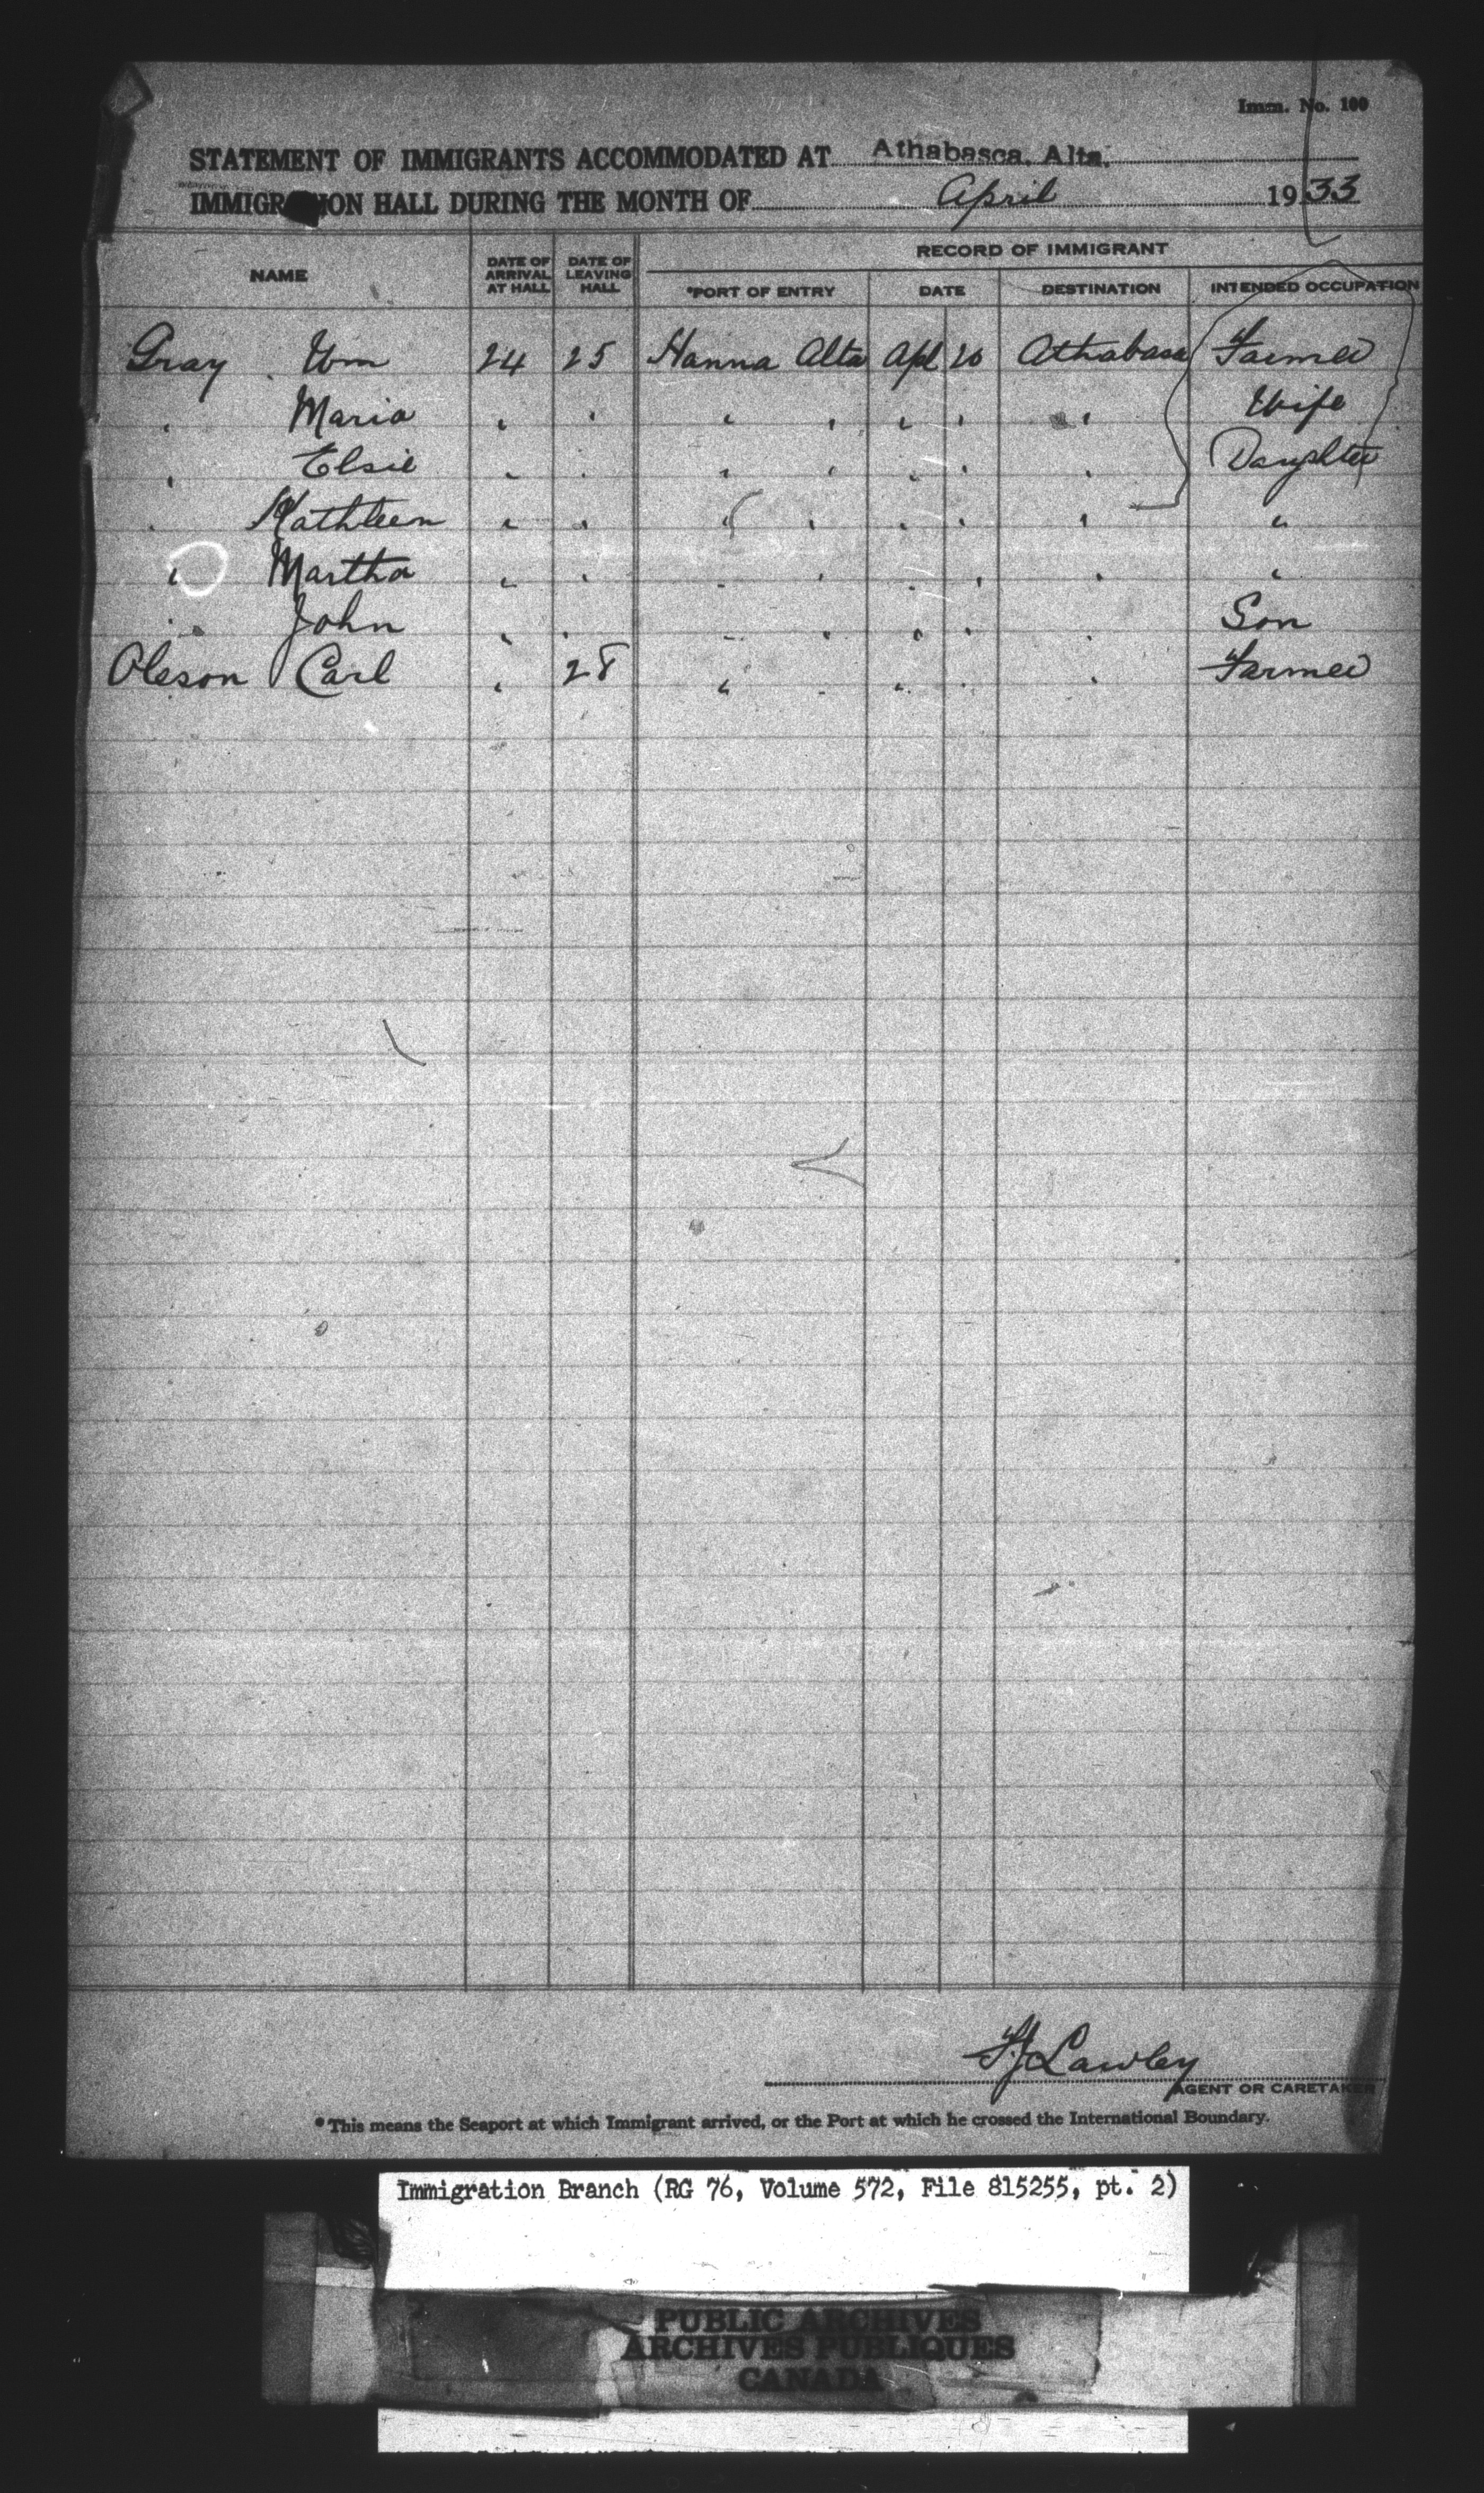 Imm. No. 100
STATEMENT OF IMMIGRANTS ACCOMMODATED AT Athabasca, Alta.
IMMIGRATION HALL DURING THE MONTH OF April 1933
RECORD OF IMMIGRANT
NAME DATE OF ARRIVAL AT HALL DATE OF LEAVING HALL *PORT OF ENTRY DATE DESTINATION INTENDED OCCUPATION
Gray Wm 24 25 Hanna Alta Apl 20 Athabasca Farmer
" Maria " " " " " " " Wife
" Elsie " " " " " " " Daughter
" Kathleen " " " " " " " "
" Martha " " " " " " " "
" John " " " " " " " Son
Oleson Carl " 28 " " " " " Farmer
FJ Lawley
AGENT OR CARETAKER
*This means the Seaport at which Immigrant arrived, or the Port at which he crossed the International Boundary.
Immigration Branch (RG 76, Volume 572, File 815255, pt. 2)
PUBLIC ARCHIVES
ARCHIVES PUBLIQUES
CANADA